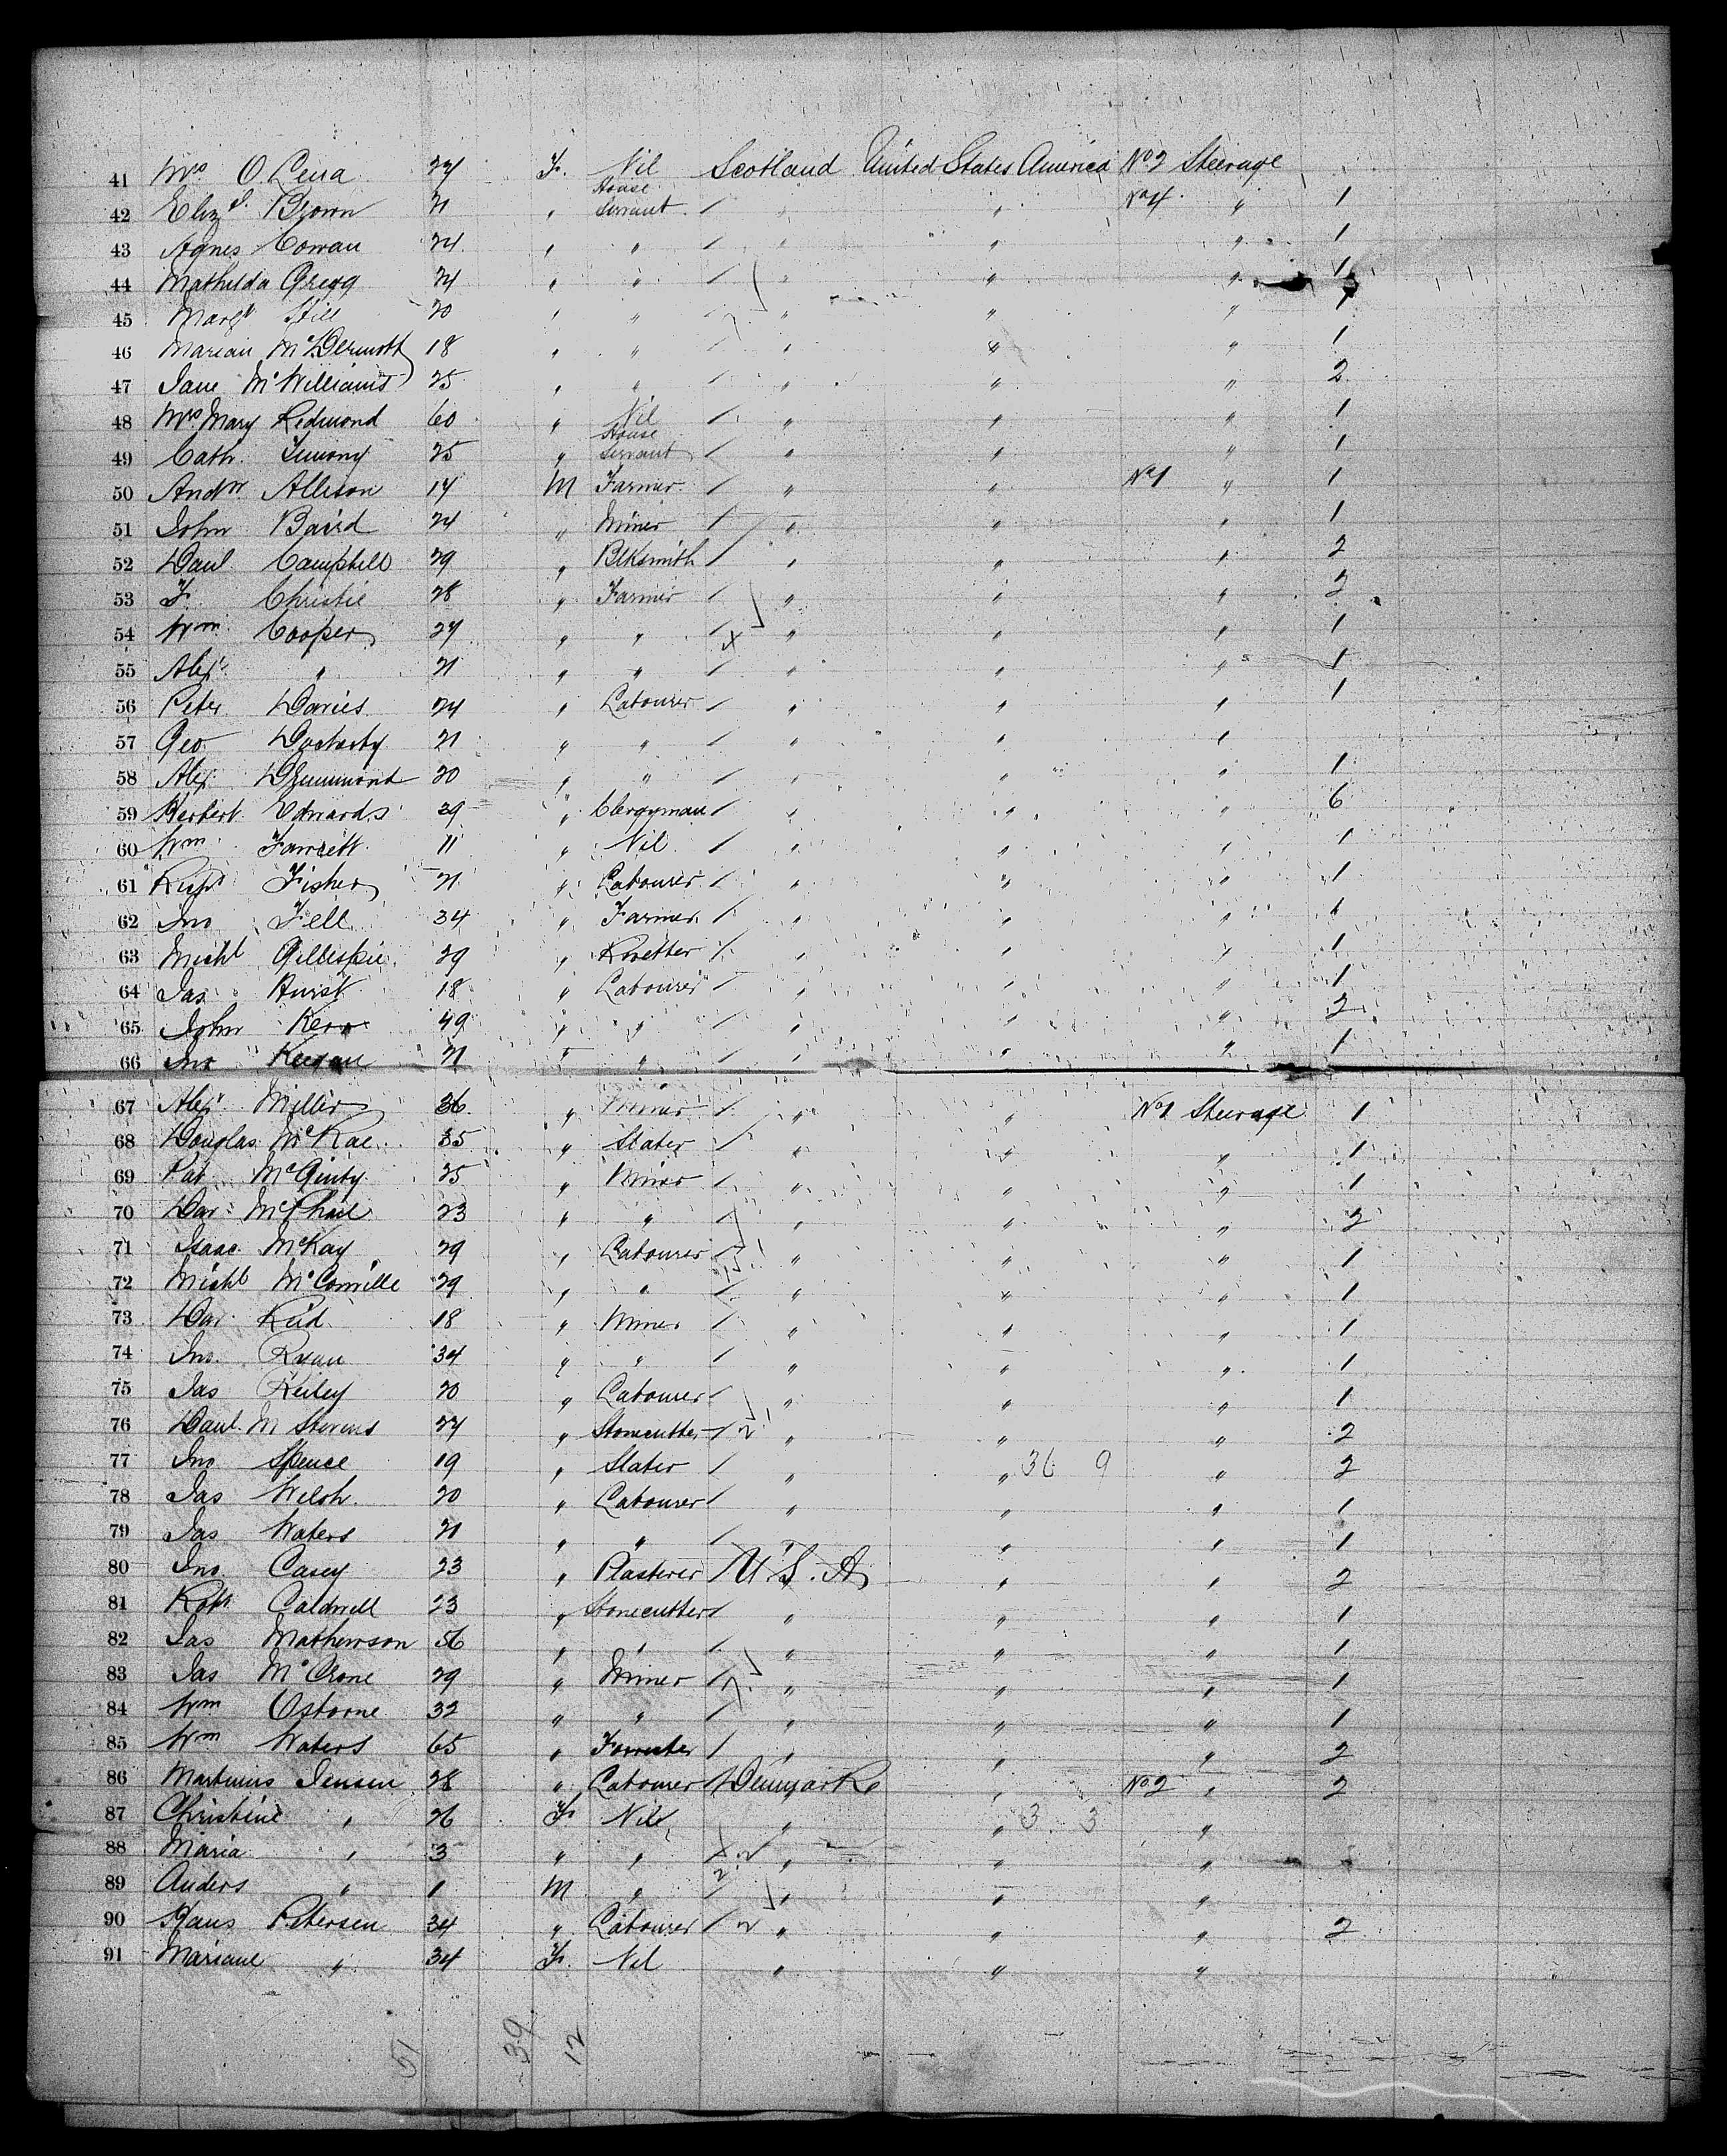 41 Mrs O. Lena 24 F. Nil Scotland United States America No 2 Steerage
42 Elizth Brown 21 " House Servant / " " No 4 " 1
43 Agnes Cowan 24 " " / " " " 1
44 Mathilda Gregg 24 " " / " " " 1
45 Margt Still 20 " " / " " " 1
46 Marian McDermott 18 " " / " " " 1
47 Jane McWilliams 25 " " / " " " 2
48 Mrs Mary Redmond 60 " Nil / " " " 1
49 Cath. Timony 25 " House Servant / " " " 1
50 Andw Allison 14 M Farmer / " " No 1 " 1
51 John Baird 24 " Miner / " " " 1
52 Danl Campbell 29 " Blksmith / " " " 2
53 F. Christie 28 " Farmer / " " " 2
54 Wm Cooper 24 " " / " " " 1
55 Alexr " 21 " " / " " " 1
56 Peter Davies 24 " Labourer / " " " 1
57 Geo. Docherty 21 " " / " " "
58 Alex Drummond 20 " " / " " " 1
59 Herbert Edwards 29 " Clergyman / " " " 6
60 Wm 11 " Nil / " " " 1
61 Richd Fisher 21 " Labourer / " " " 1
62 Jno Fell 34 " Farmer / " " " 1
63 Michl Gillespie 29 " / " " " 1
64 Jas Hurst 18 " Labourer / " " " 1
65 John Kerr 49 " " / " " " 2
66 Jno Keegan 21 " " / " " " 1
67 Alexr Miller 36 " / " " No 1 Steerage 1
68 Douglas McRae 35 " Slater / " " " 1
69 Pat McGinty 25 " Miner / " " " 1
70 Dav: McPhail 23 " " / " " " 2
71 Isaac McKay 29 " Labourer / " " " 1
72 Michl McConville 29 " " / " " " 1
73 Dav. Reid 18 " Miner / " " " 1
74 Jno. Ryan 34 " " / " " " 1
75 Jas Reiley 20 " Labourer / " " " 1
76 Danl. M Stevens 24 " Stonecutter / " " " 2
77 Jno Spence 19 " Slater / " " 36 9 " 2
78 Jas Welsh 20 " Labourer / " " " 1
79 Jas Waters 21 " " / " " " 1
80 Jno. Casey 23 " Plasterer / U.S.A " " 2
81 Robt Caldwell 23 " Stonecutter / " " " 1
82 Jas Mathewson 56 " " / " " " 1
83 Jas McCrone 29 " Miner / " " " 1
84 Wm Osborne 32 " " / " " " 1
85 Wm Waters 65 " Forrester / " " " 2
86 Martinus Jensen 28 " Labourer / Denmark " No 2 " 2
87 Christine " 26 F. Nil " " 3 3 "
88 Maria " 3 " " " " "
89 Anders " 1 M " / " " "
90 Hans Petersen 34 " Labourer / " " " 2
91 Mariane " 34 F. Nil " " "
51 39 12